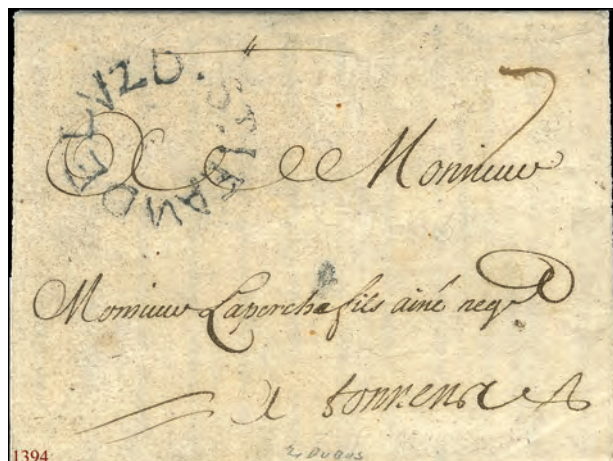 D.S.IEANDELVZ
7
Monsieur
Monsieur Laperche fils ainé neg^t
A tonneins
1394